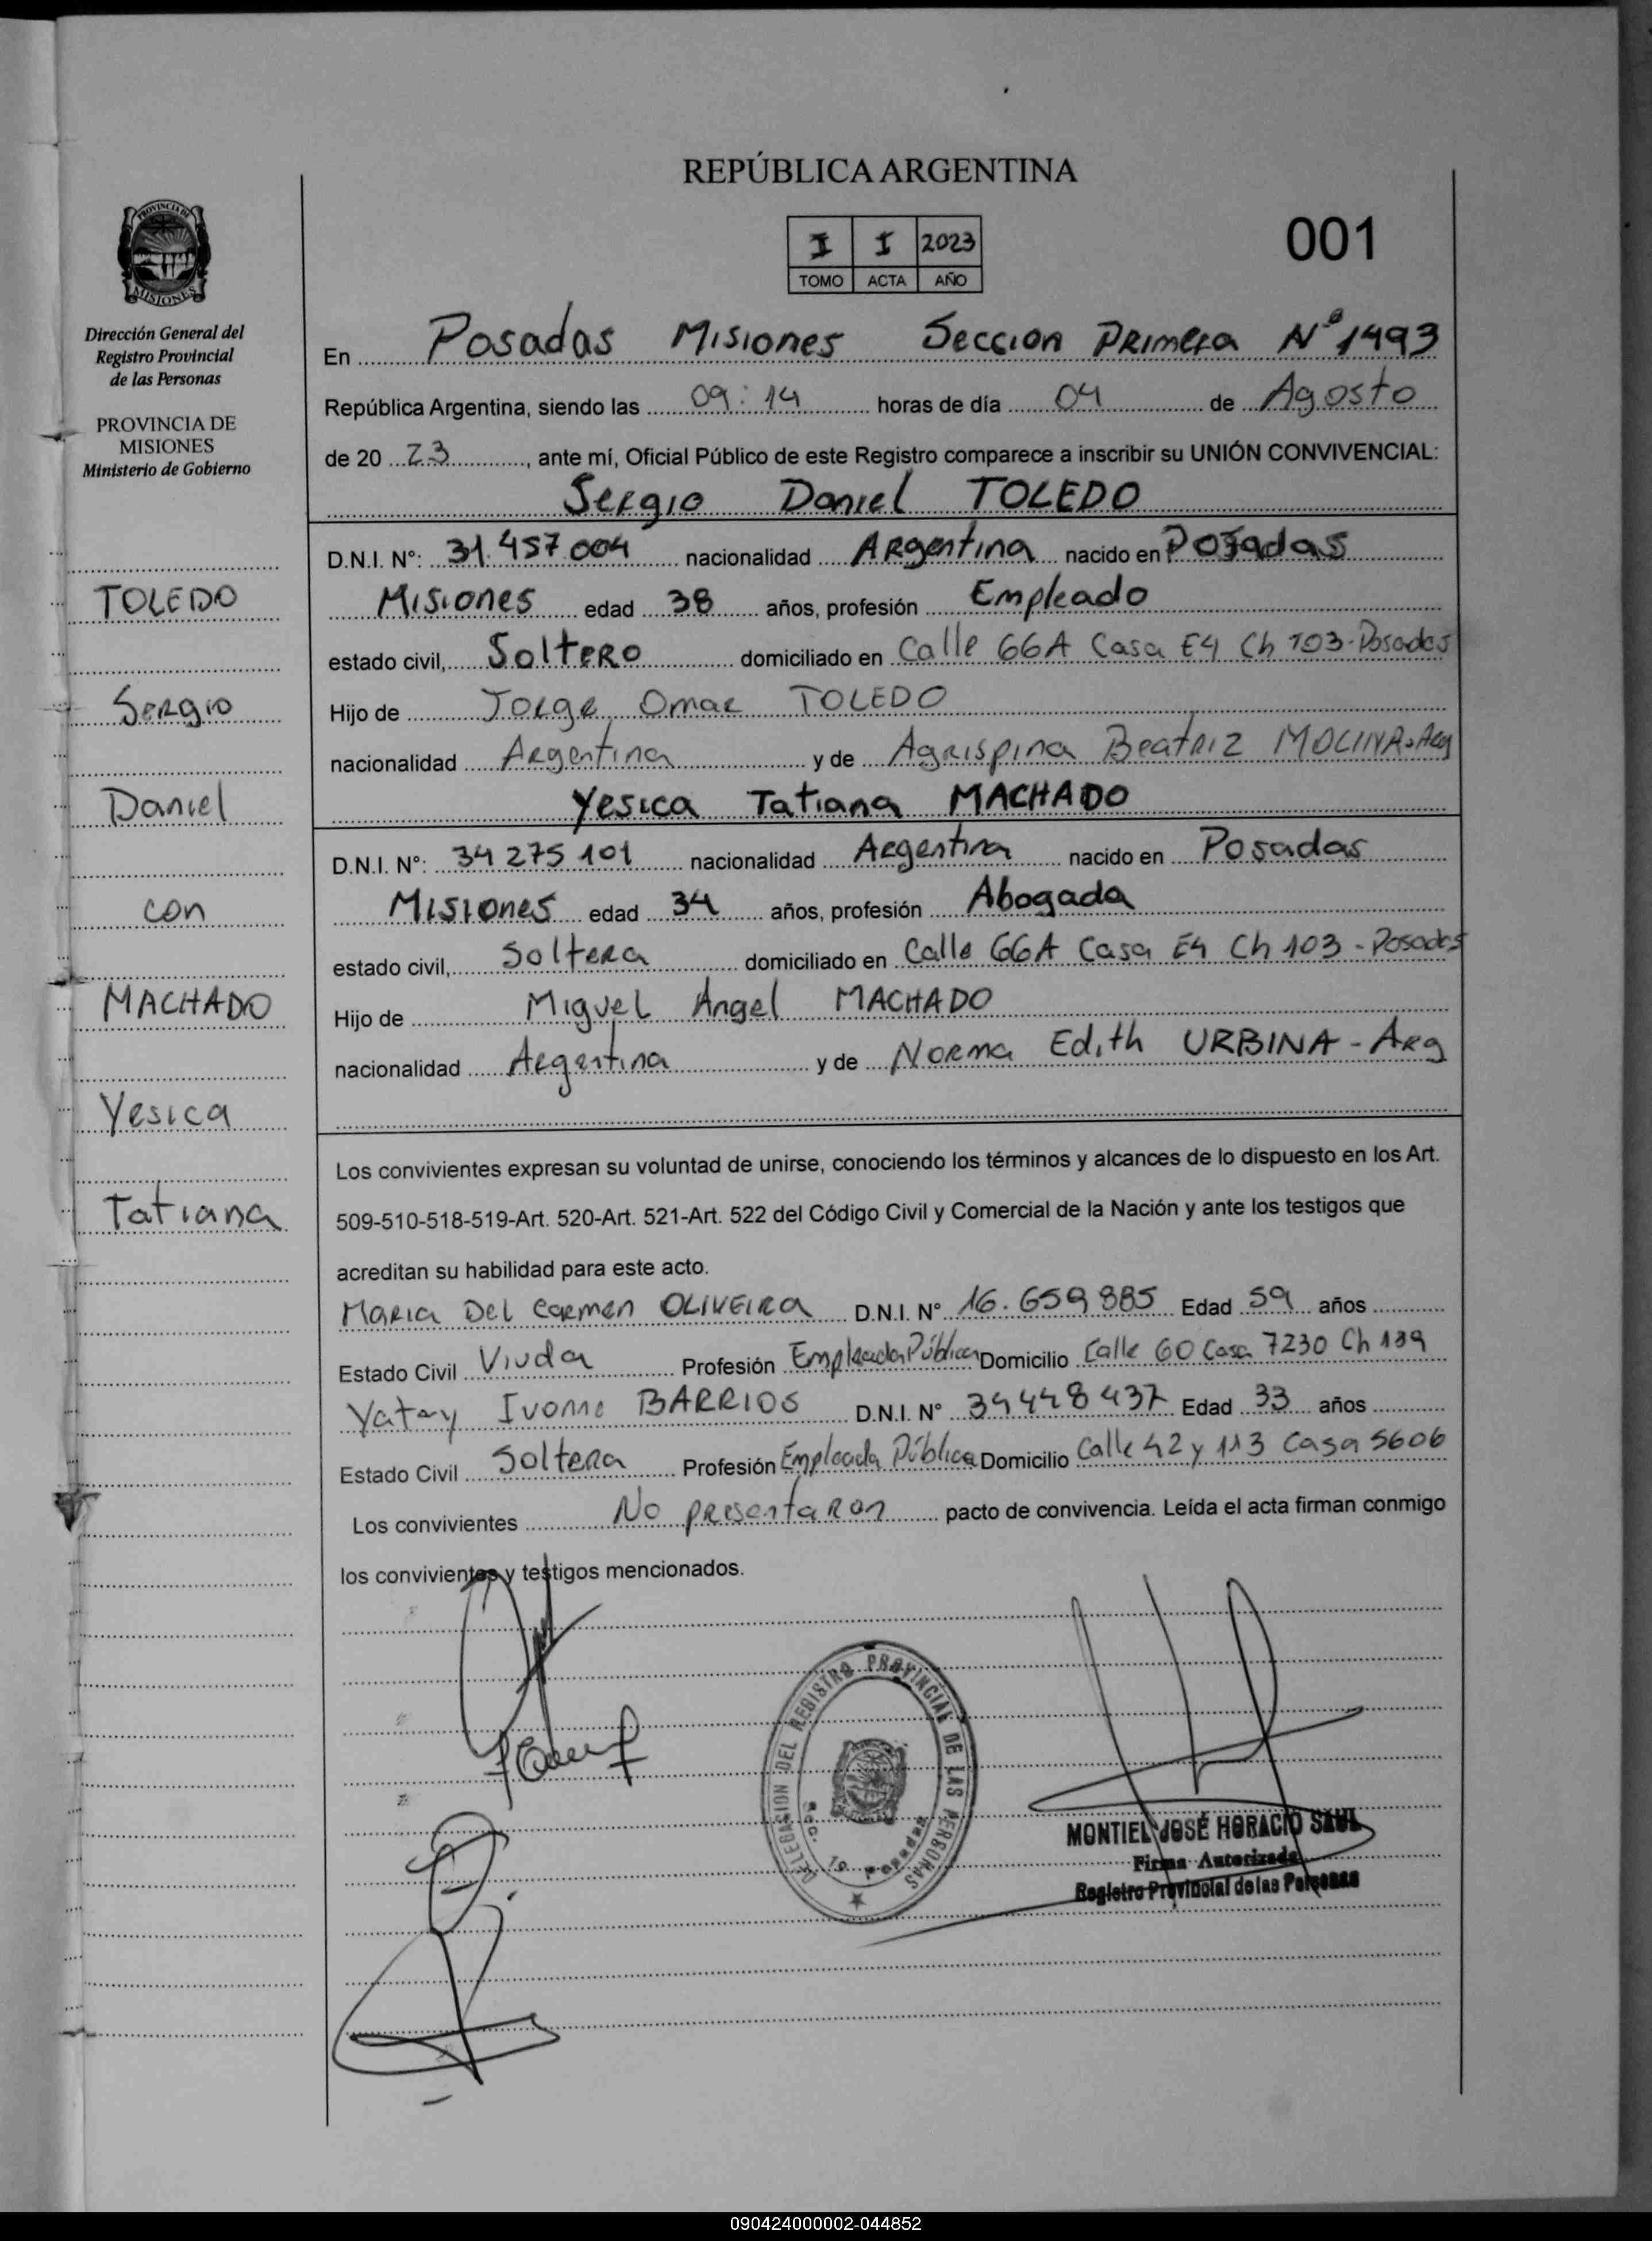 REPÚBLICA ARGENTINA
I I 2023
TOMO ACTA AÑO
001
PROVINCIA DE
MISIONES
Dirección General del
Registro Provincial
de las Personas
PROVINCIA DE
MISIONES
Ministerio de Gobierno
TOLEDO
Sergio
Daniel
con
MACHADO
Yesica
Tatiana
En Posadas Misiones Seccion Primera N° 1493
República Argentina, siendo las 09:14 horas de día 04 de Agosto
de 20 23, ante mí, Oficial Público de este Registro comparece a inscribir su UNIÓN CONVIVENCIAL:
Sergio Daniel TOLEDO
D.N.I. N°: 31.457.004 nacionalidad Argentina nacido en Posadas
Misiones edad 38 años, profesión Empleado
estado civil, Soltero domiciliado en Calle 66A Casa E4 Ch 103-Posadas
Hijo de Jorge Omar TOLEDO
nacionalidad Argentina y de Agrispina Beatriz MOLINA-Arg
Yesica Tatiana MACHADO
D.N.I. N°: 34 275 101 nacionalidad Argentina nacido en Posadas
Misiones edad 34 años, profesión Abogada
estado civil, Soltera domiciliado en Calle 66A Casa E4 Ch 103 - Posadas
Hijo de Miguel Angel MACHADO
nacionalidad Argentina y de Norma Edith URBINA - Arg
Los convivientes expresan su voluntad de unirse, conociendo los términos y alcances de lo dispuesto en los Art.
509-510-518-519-Art. 520-Art. 521-Art. 522 del Código Civil y Comercial de la Nación y ante los testigos que
acreditan su habilidad para este acto.
Maria Del Carmen OLIVEIRA D.N.I. N° 16.659 885 Edad 59 años
Estado Civil Viuda Profesión Empleada Pública Domicilio Calle 60 Casa 7230 Ch 139
Yatay Ivonne BARRIOS D.N.I. N° 34 448 437 Edad 33 años
Estado Civil Soltera Profesión Empleada Pública Domicilio Calle 42 y 113 Casa 5606
Los convivientes No presentaron pacto de convivencia. Leída el acta firman conmigo
los convivientes y testigos mencionados.
DELEGACION DEL REGISTRO PROVINCIAL DE LAS PERSONAS
Sec. 1a Posadas
MONTIEL JOSÉ HORACIO SAUL
Firma Autorizada
Registro Provincial de las Personas
090424000002-044852